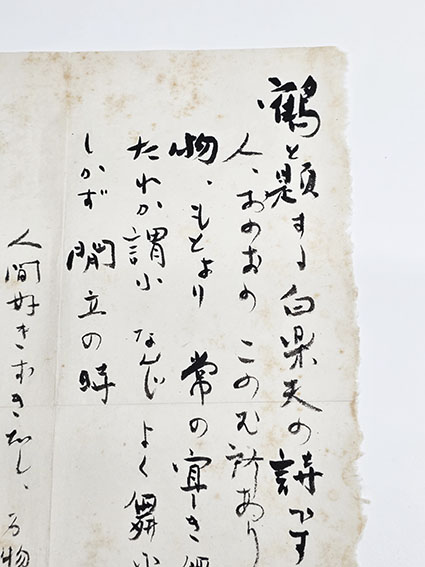 鶴と題する 白楽天の詩です
人、おのおの このむ所あり
物、もとより 常の宜しき
たれか謂ふ なんじ よく舞ふ
しかず 閑立の時
人間好きずき 万物